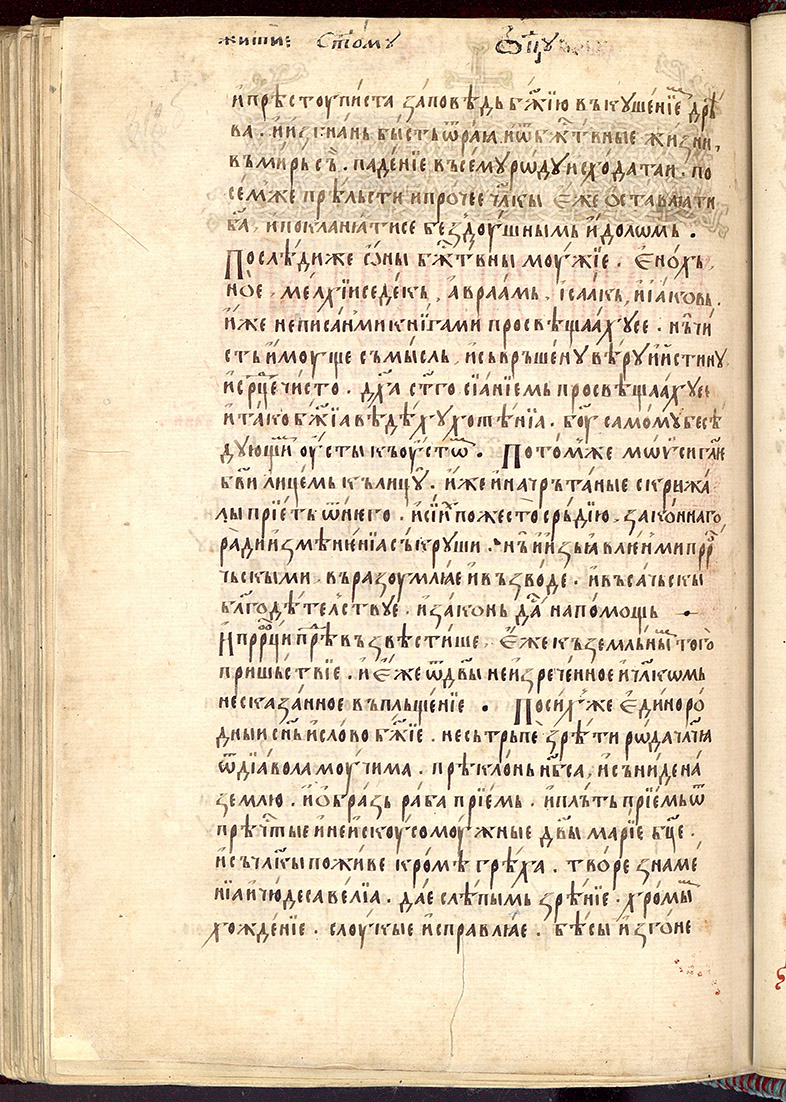 житие ст҃ому ѻц҃у
и҆прѣстоуписта за́повѣдь бж҃їю въкꙋше́нїе дрѣ́
ва . и҆и҆згнань бы́сть ѿраꙗ и҆ѿ бж҃тв́ные жи́зни ,
въмирь съ̀ . паде́нїе въсемꙋ рѡдꙋ исхода́таи . по
се́мже прѣльсти ипро́чее чл҃кы е҆же ѻ҆ставлꙗ́ти
ба҃ , и҆покланꙗ́тисе бездоу́шнымь и҆́долѡмь .
Послѣ́диже ѡ҆́ны бж҃твны моу́жїе . Е҆но́хь ,
но́е . ме́лхїиседе́кь , а҆враа́мь , і҆саа́кь , и҆ і҆а́ковь .
и҆́же неписа́нми кни́гами просвѣща́ахꙋсе . нь̀чи́
сть и҆моу́ще съмы́сль , и҆съврьше́нꙋ вѣ́рꙋ и҆и҆́стинꙋ
и҆ срⷣце чи́сто . дх҃а ст҃го сїа́нїемь просвѣща́ахꙋсе
и҆та́ко бж҃їа вѣ́дѣхꙋ хотѣ́нїа . бо҃у самомꙋ бесѣ́
дꙋющꙋ ѹ҆сты́ къѹ҆стѡⷨ . Пото́мже мѡѵсі гл҃ае
бв҃и лице́мь кълицꙋ̀ . и҆́же и҆начрьта́ные скрижа́
лы прїе́ть ѿ не́го . и҆сїи́ пожесто́срьдїю , зако́ннаго
ра́ди и҆змѣне́нїа съкрꙋшѝ . нь̀ и҆и҆зьꙗвле́нми прⷪ҇рⷪ҇
чьскыми въразꙋмлꙗ́е и҆възво́де . и҆въса́чьскы
блг҃одѣ́телствꙋе . и҆зако́нь да҃ на по́мощь
И҆прⷪ҇рⷪ҇ци прѣⷣвъзвѣсти́ше . е҆́же къземльныⷨ того̀
прише́ствїе . и҆ е҆́же ѿдв҃ы неи҆зрече́нное и҆чл҃кѡмь
несказа́нное въплъще́нїе . Поси́хже е҆диноро́
дныи сн҃ь и҆сло́во бж҃їе . несьтрьпѐ зрѣ́ти рѡда чл҃ча
ѿ дїа́вола моу́чима . прѣкло́нь нб҃са , и҆съни́де на́
зе́млю . и҆ѻ҆́бразь раба прїе́мь . и҆пль́ть прїе́мь ѿ
прѣчⷭ҇тые и҆неи҆скꙋсомꙋ́жные дв҃ы марі́е бц҃е .
и҆съчл҃кы поживе кро́мѣ грѣ́ха . тво́ре зна́ме́
нїа и҆чюдеса ве́лїа . да́е слѣ́пымь зрѣ́нїе . хро́мыⷨ
хожде́нїе . слоу́кые и҆справлꙗ́е . бѣ́сы и҆зго́не